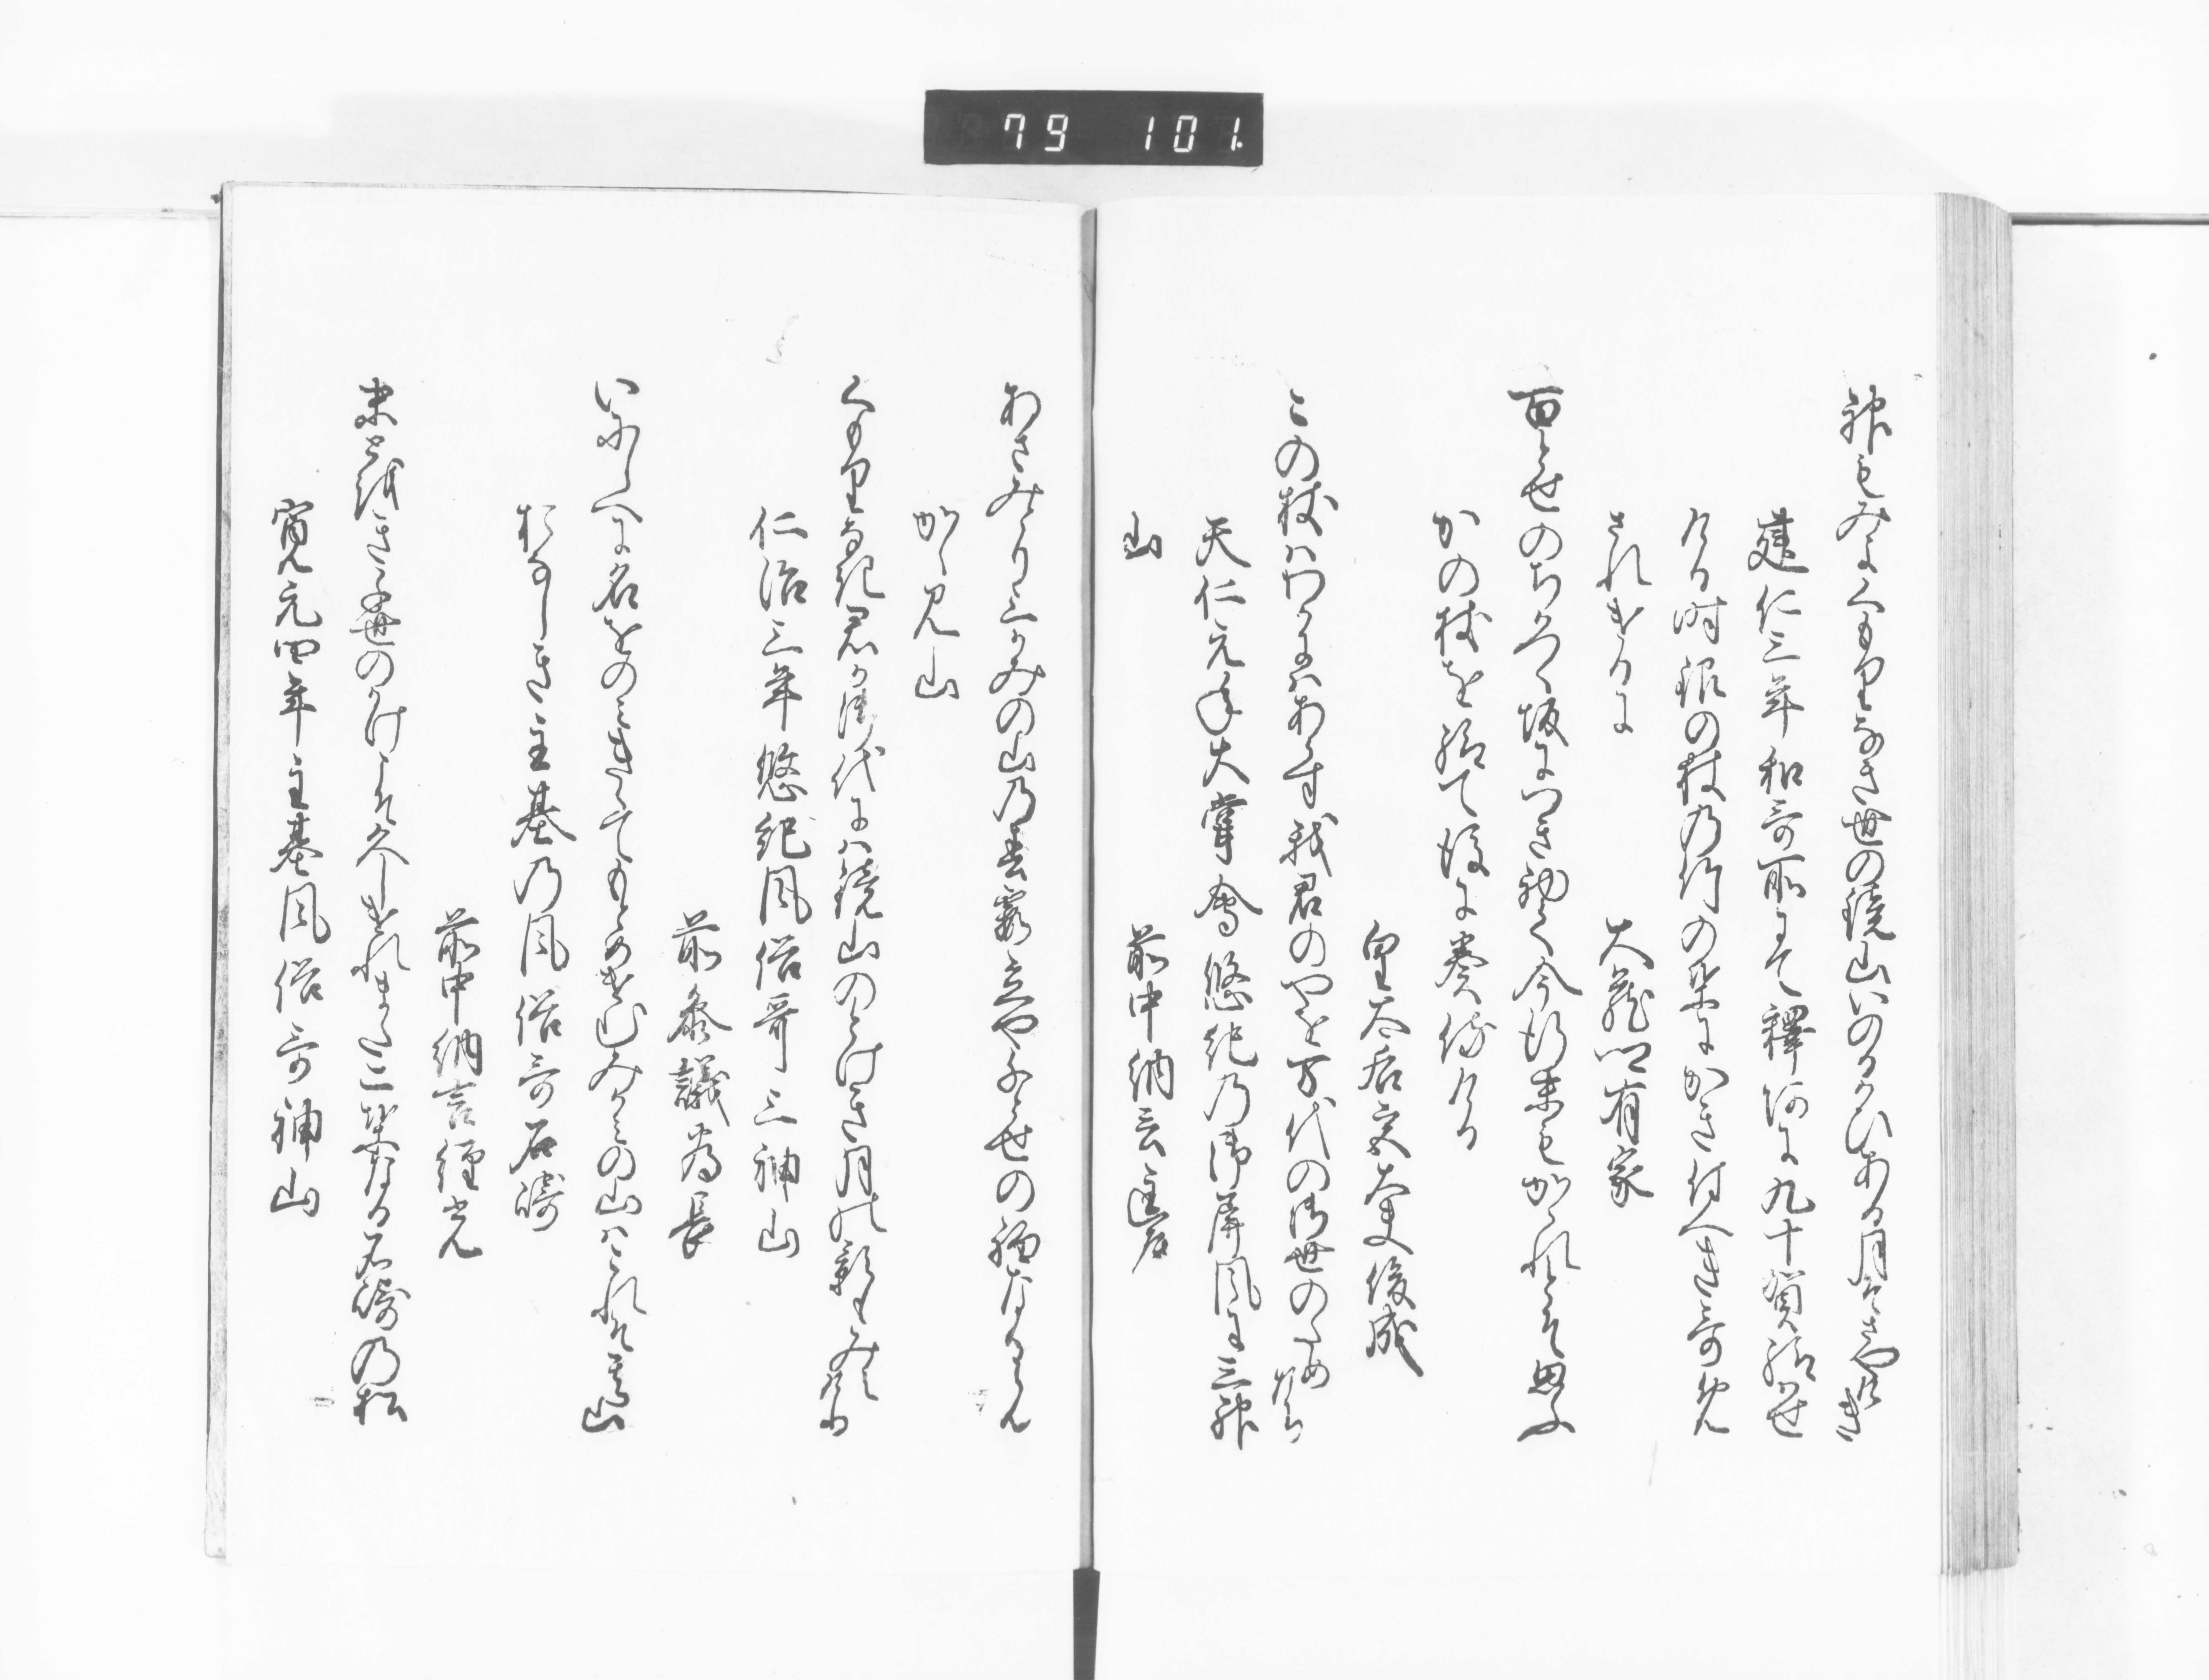 79 101
神もみよくもりなき世の鏡山いのるかひある月そさやけき
建仁三年和哥所にて釋阿に九十賀給せ
ける時銀の杖乃竹の葉にかき付へき哥めん
されけるに
大蔵卿有家
百とせのちかつく坂につき初て今行末もかゝれとそ思ふ
かの杖を給て後に奏侍ける
皇太后宮大夫俊成
この杖はわかにはあらす我君のやを万代の御世のためなり
天仁元年大嘗會悠紀乃御屏風に三神
山
前中納言匡房
あさみとり三かみの山乃春霞立や千とせの初なるらん
かゝみ山
くもりなき君か御代には鏡山のとけき月の影もみえけり
仁治三年悠紀風俗哥三神山
前參議為長
いにしへに名をのみきゝてもとめけむみかみの山はこれそ其山
おなしき主基乃風俗哥石崎
前中納言經光
末とをき千世のかけこそ久しけれまた二葉なる石崎の松
寛元四年主基風俗哥神山